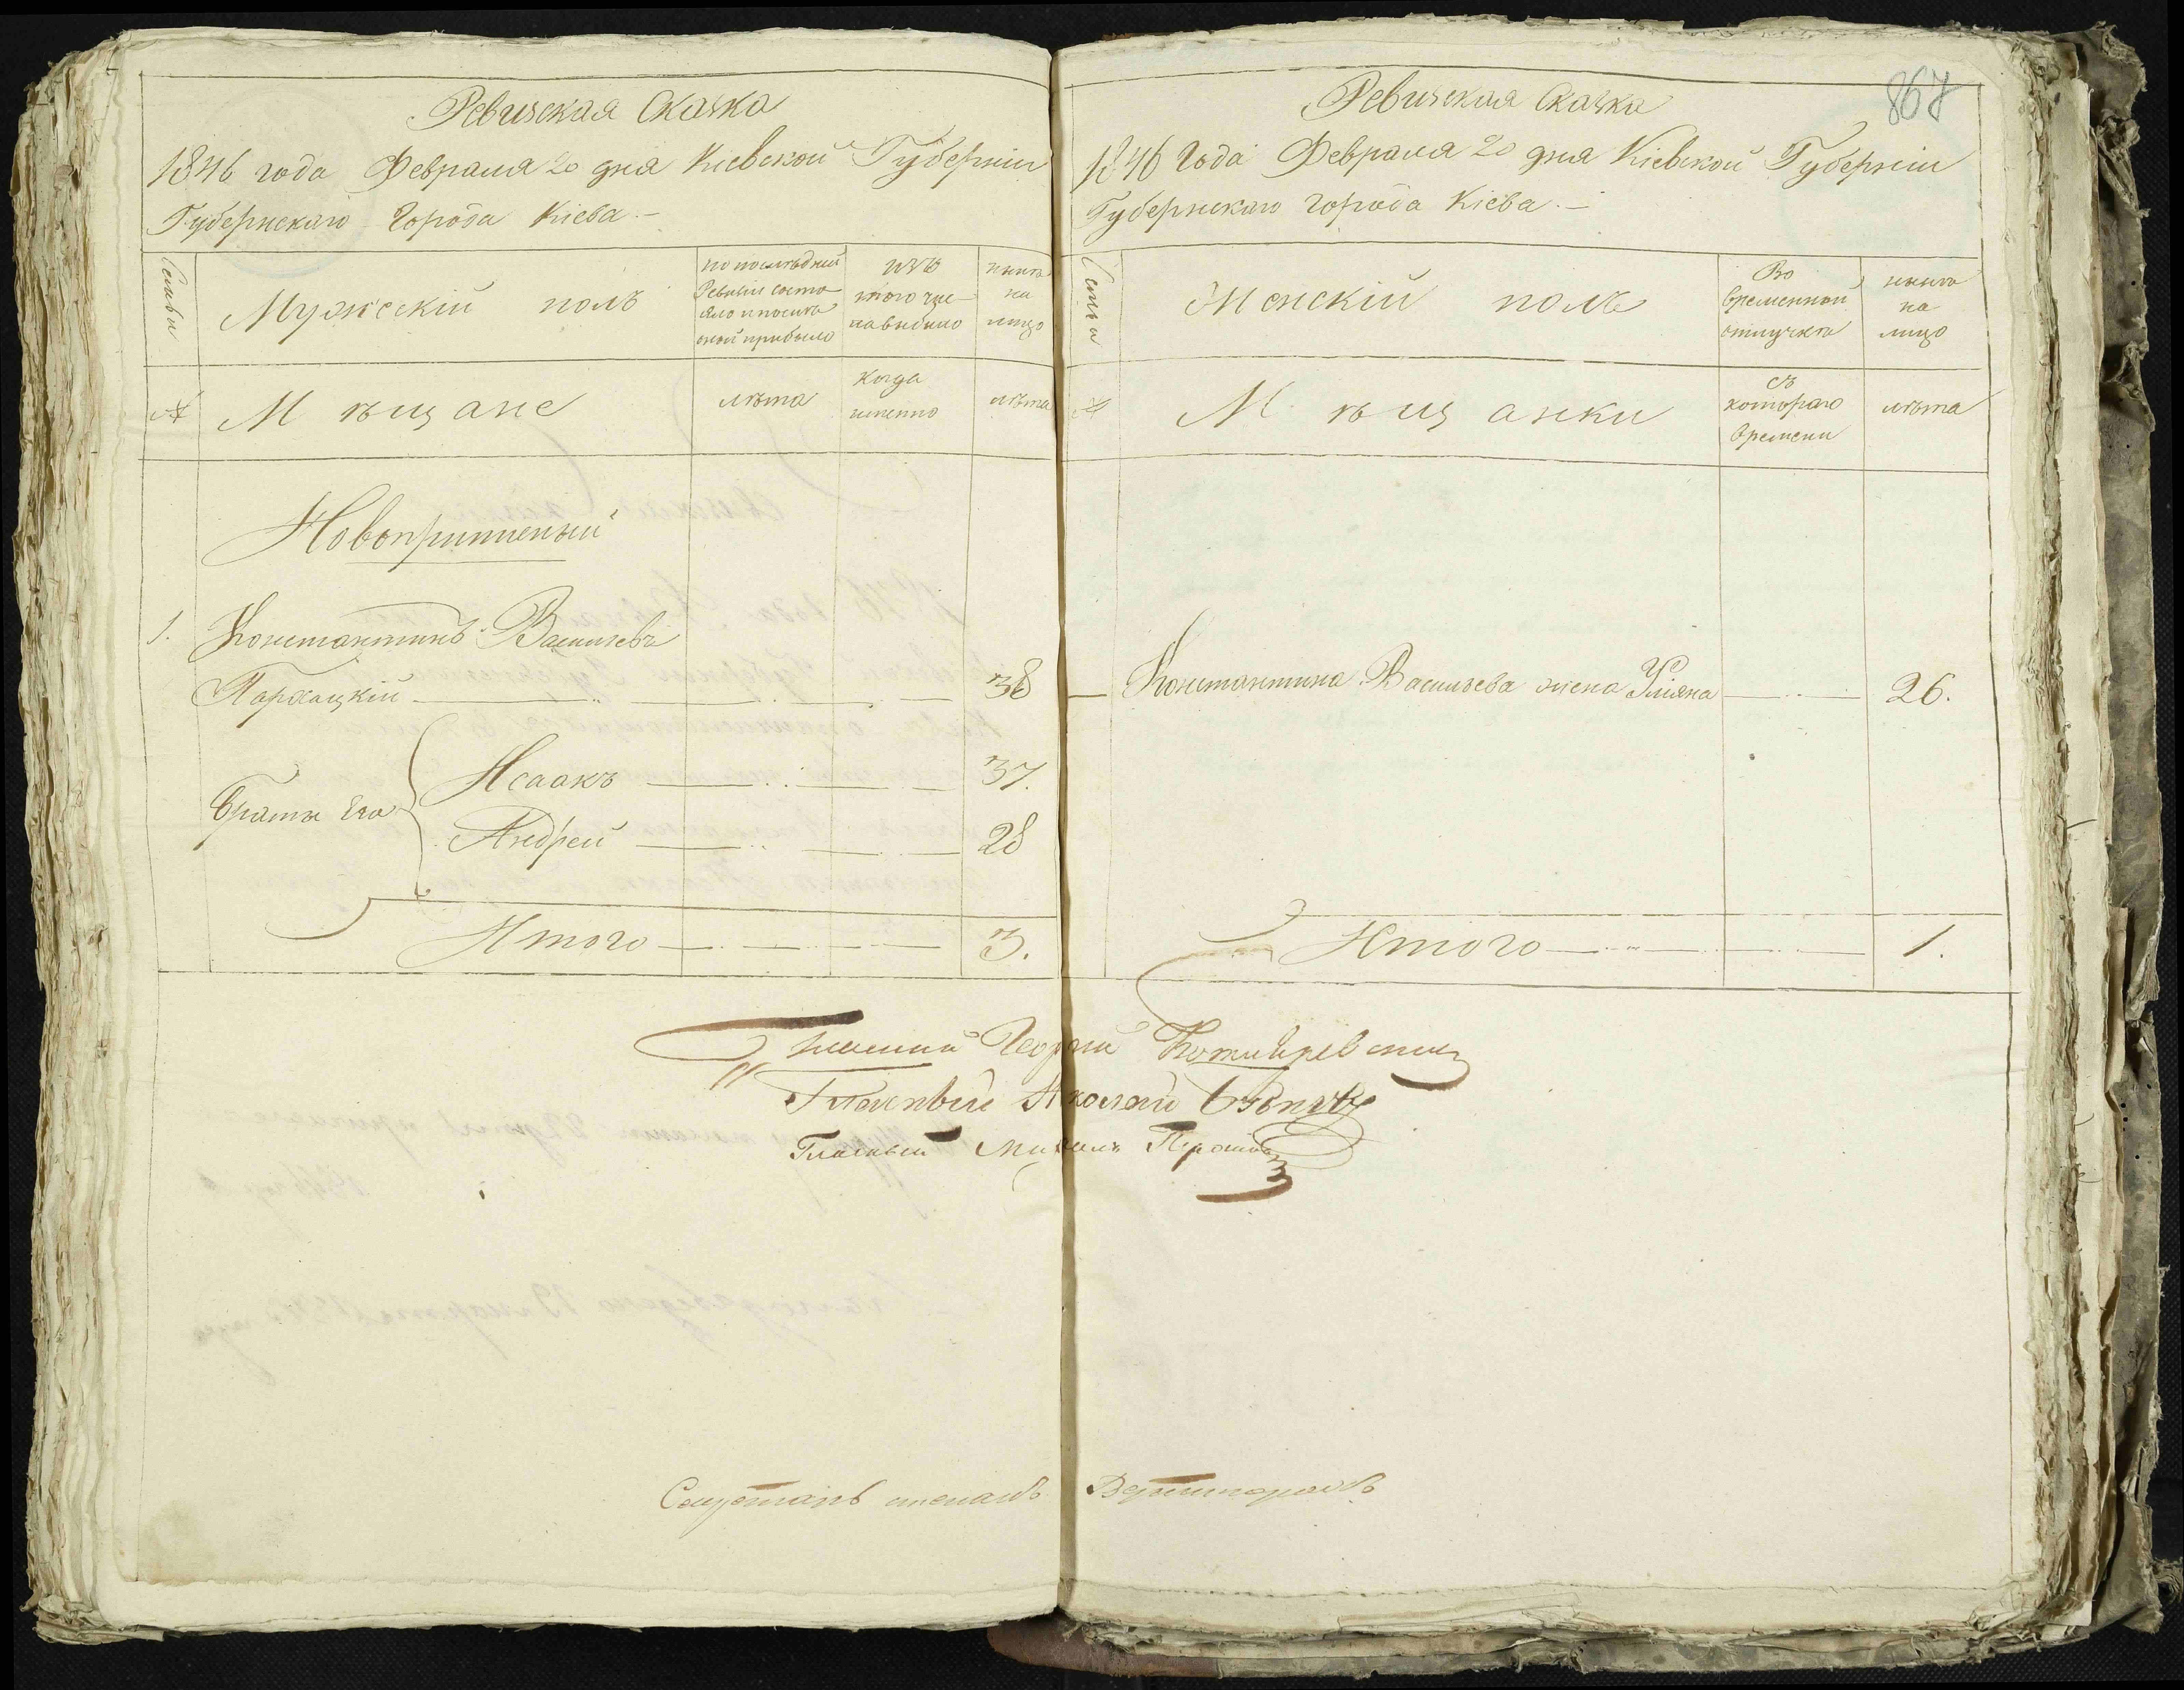 Ревизская Сказка
1846 года Февраля 20 дня Кіевской Губерніи
Губернскаго Города Кіева.-
Семьи
Мужескій полъ
по послѣдней
Ревизіи состо-
яло и послѣ
оной прибыло
изъ
того чис-
ла выбыло
нынѣ
на
лицо
№
Мѣщане
лѣта
когда
именно
лѣта
Новоприписный
1. Константинъ Васильевъ
Пархацкій 38
Братья Его
Исаакъ 37.
Андрей 28
Итого 3.
867
Ревизская Сказка
1846 Года Февраля 20 дня Кіевской Губерніи
Губернскаго Города Кіева.-
Семьи
Женскій полъ
Во
временной
отлучкѣ
нынѣ
на
лицо
№
Мѣщанки
съ
котораго
времени
лѣта
Константина Васильева жена Уліяна 26.
Итого 1.
Гласный Георгій
Гласный Николай
Гласный Михаилъ